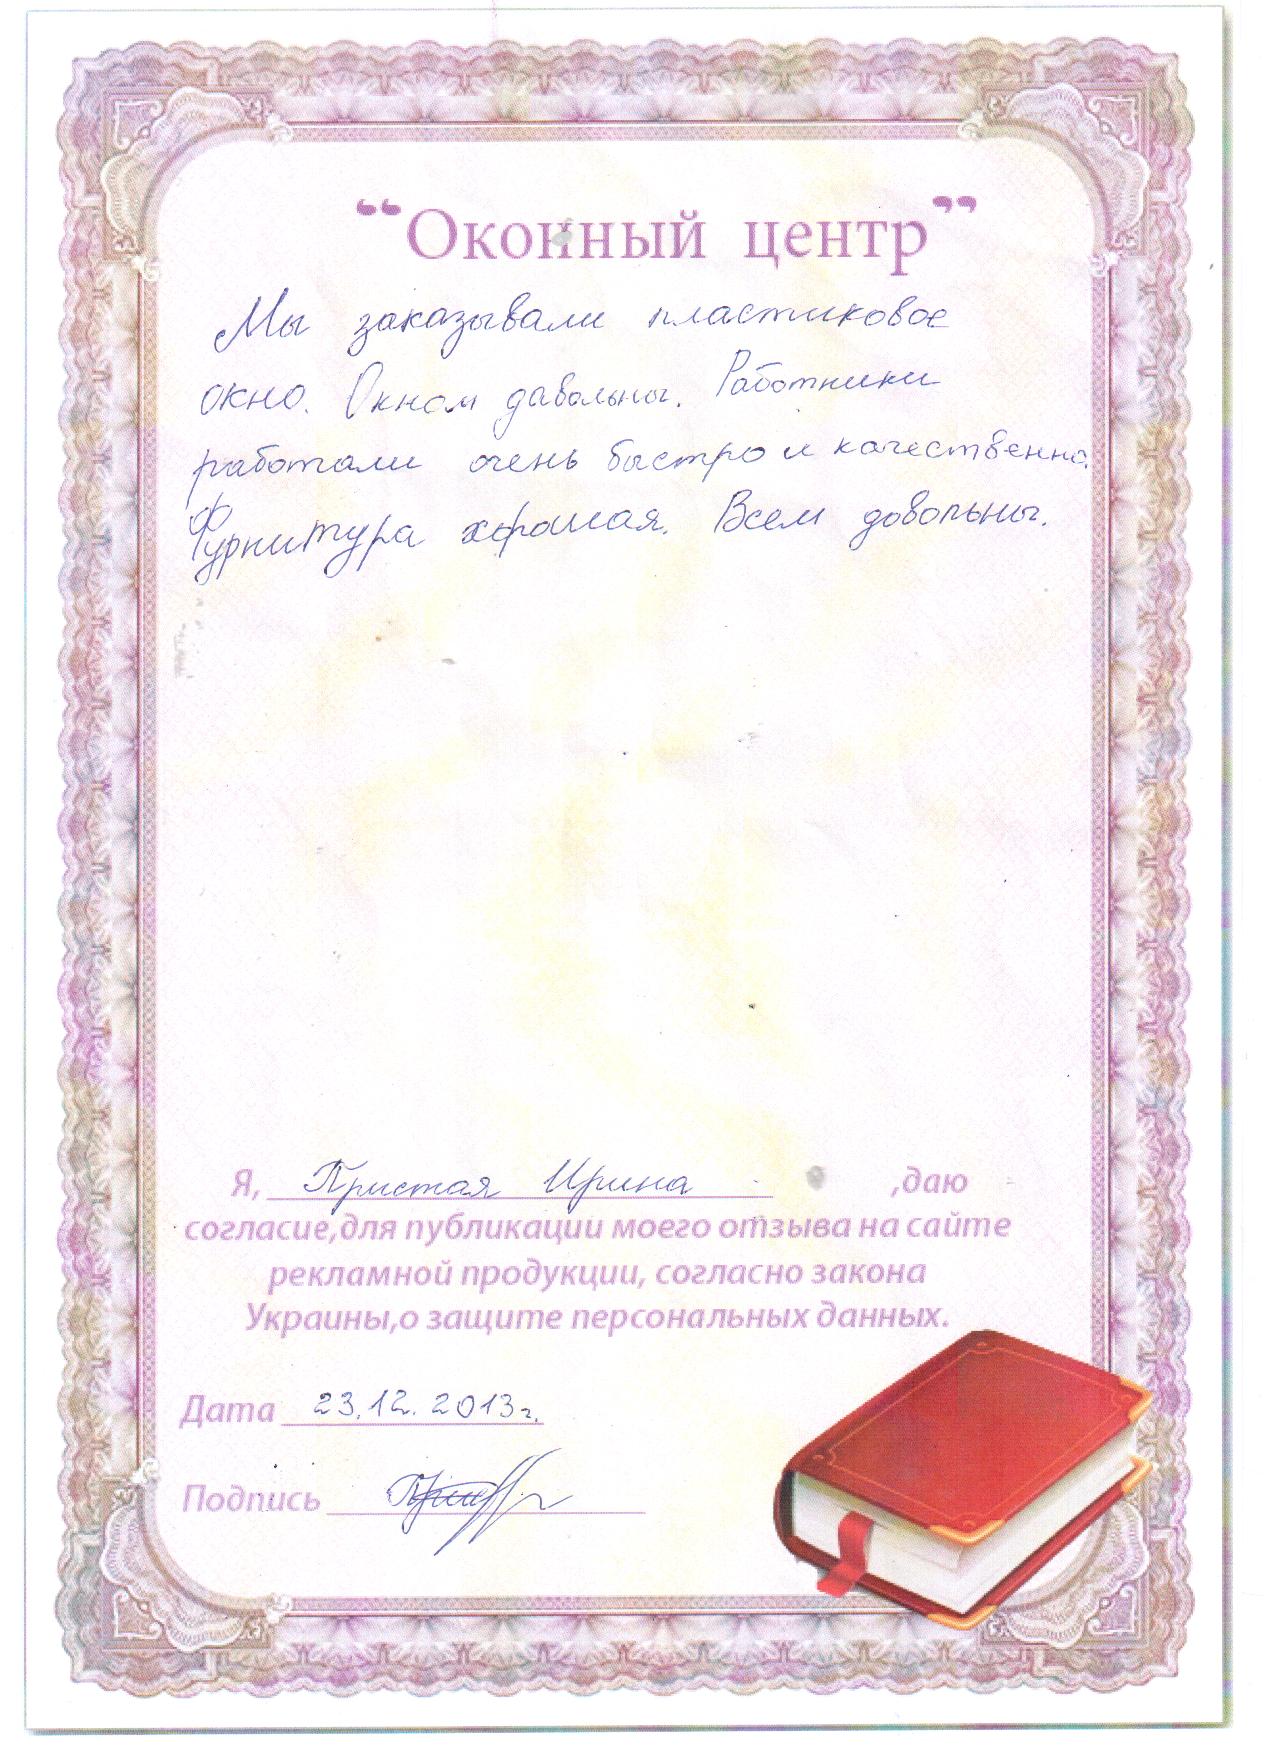 “Оконный центр”
Мы заказывали пластиковое
окно. Окном давольны. Работники
работали очень быстро и качественно.
Фурнитура хорошая. Всем довольны.
Я, Пристая Ирина ,даю
согласие,для публикации моего отзыва на сайте
рекламной продукции, согласно закона
Украины,о защите персональных данных.
Дата 23.12.2013г.
Подпись